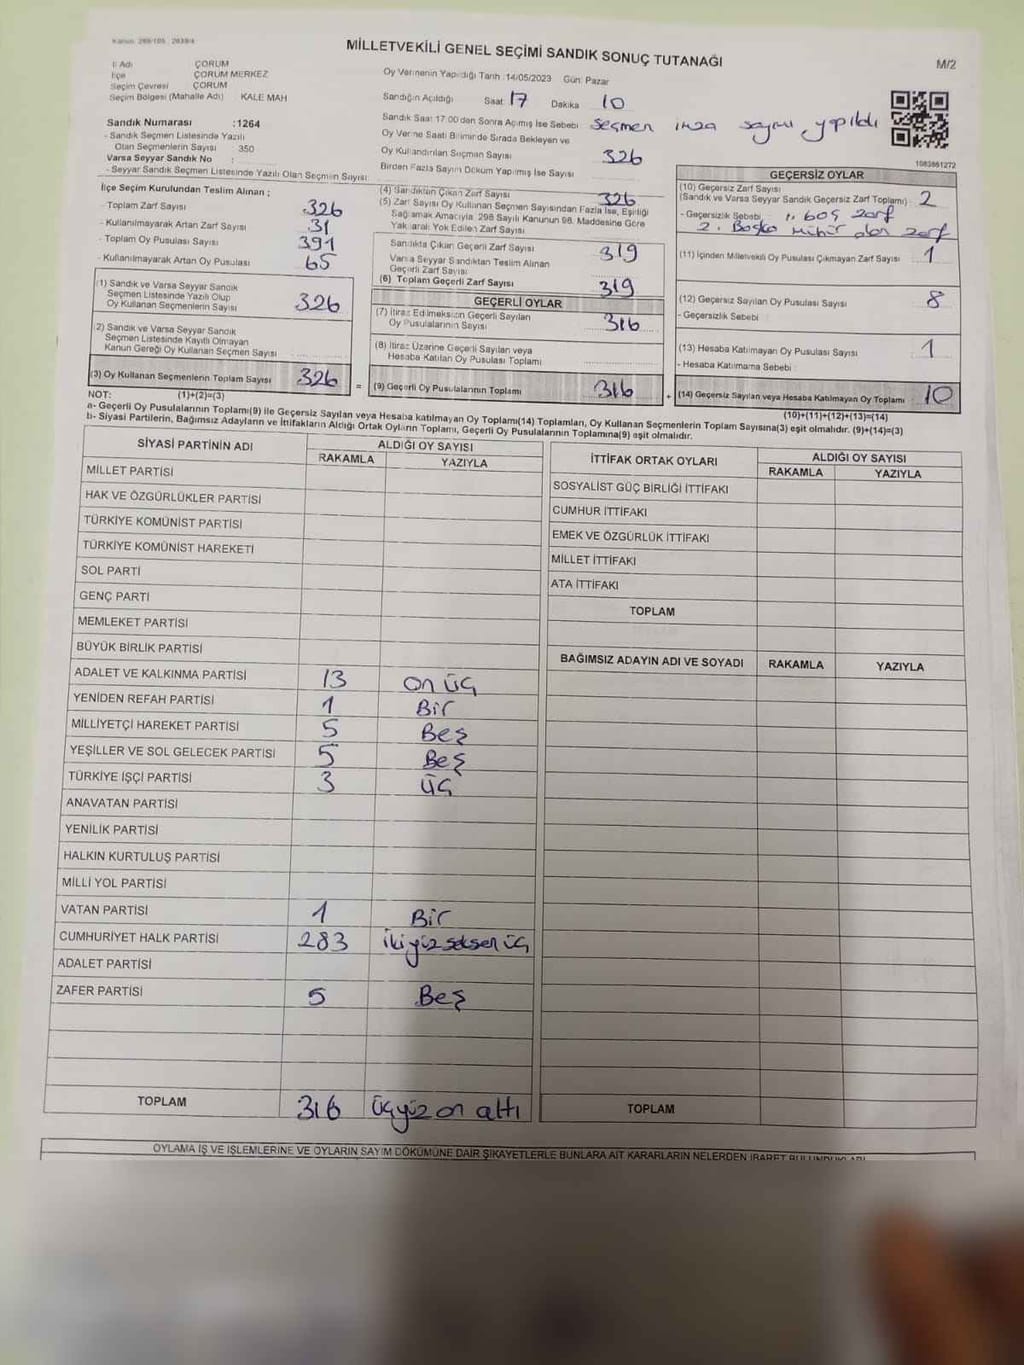 MİLLETVEKİLİ GENEL SEÇİMİ SANDIK SONUÇ TUTANAĞI
M/2
İl Adı ÇORUM
İlçe ÇORUM MERKEZ
Seçim Çevresi ÇORUM
Seçim Bölgesi (Mahalle Adı) KALE MAH
Oy Vermenin Yapıldığı Tarih :14/05/2023 Gün: Pazar
Sandığın Açıldığı Saat 17 Dakika 10
Sandık Saat 17:00'den Sonra Açılmış İse Sebebi seçmen imza sayımı yapıldı
Oy Verme Saati Bitiminde Sırada Bekleyen ve
Oy Kullandırılan Seçmen Sayısı 326
Birden Fazla Sayım Döküm Yapılmış İse Sayısı
1083861272
Sandık Numarası :1264
- Sandık Seçmen Listesinde Yazılı
Olan Seçmenlerin Sayısı 350
Varsa Seyyar Sandık No :
- Seyyar Sandık Seçmen Listesinde Yazılı Olan Seçmen Sayısı:
İlçe Seçim Kurulundan Teslim Alınan ;
- Toplam Zarf Sayısı 326
- Kullanılmayarak Artan Zarf Sayısı 31
- Toplam Oy Pusulası Sayısı 391
- Kullanılmayarak Artan Oy Pusulası 65
(1) Sandık ve Varsa Seyyar Sandık
Seçmen Listesinde Yazılı Olup
Oy Kullanan Seçmenlerin Sayısı 326
2) Sandık ve Varsa Seyyar Sandık
Seçmen Listesinde Kayıtlı Olmayan
Kanun Gereği Oy Kullanan Seçmen Sayısı
(3) Oy Kullanan Seçmenlerin Toplam Sayısı 326 =
(1)+(2)=(3)
(4) Sandıktan Çıkan Zarf Sayısı 326
(5) Zarf Sayısı Oy Kullanan Seçmen Sayısından Fazla İse, Eşitliği
Sağlamak Amacıyla 298 Sayılı Kanunun 98. Maddesine Göre
Yakılarak Yok Edilen Zarf Sayısı
Sandıkta Çıkan Geçerli Zarf Sayısı 319
Varsa Seyyar Sandıktan Teslim Alınan
Geçerli Zarf Sayısı
(6) Toplam Geçerli Zarf Sayısı 319
GEÇERLİ OYLAR
(7) İtiraz Edilmeksizin Geçerli Sayılan
Oy Pusulalarının Sayısı 316
(8) İtiraz Üzerine Geçerli Sayılan veya
Hesaba Katılan Oy Pusulası Toplamı
(9) Geçerli Oy Pusulalarının Toplamı 316 +
GEÇERSİZ OYLAR
(10) Geçersiz Zarf Sayısı
(Sandık ve Varsa Seyyar Sandık Geçersiz Zarf Toplamı) 2
- Geçersizlik Sebebi 1. boş zarf
2. Başka mühür olan zarf
(11) İçinden Milletvekili Oy Pusulası Çıkmayan Zarf Sayısı 1
(12) Geçersiz Sayılan Oy Pusulası Sayısı 8
- Geçersizlik Sebebi
(13) Hesaba Katılmayan Oy Pusulası Sayısı 1
- Hesaba Katılmama Sebebi
(14) Geçersiz Sayılan veya Hesaba Katılmayan Oy Toplamı 10
(10)+(11)+(12)+(13)=(14)
NOT:
a- Geçerli Oy Pusulalarının Toplamı(9) ile Geçersiz Sayılan veya Hesaba katılmayan Oy Toplamı(14) Toplamları, Oy Kullanan Seçmenlerin Toplam Sayısına(3) eşit olmalıdır. (9)+(14)=(3)
b- Siyasi Partilerin, Bağımsız Adayların ve İttifakların Aldığı Ortak Oyların Toplamı, Geçerli Oy Pusulalarının Toplamına(9) eşit olmalıdır.
SİYASİ PARTİNİN ADI ALDIĞI OY SAYISI
RAKAMLA YAZIYLA
MİLLET PARTİSİ
HAK VE ÖZGÜRLÜKLER PARTİSİ
TÜRKİYE KOMÜNİST PARTİSİ
TÜRKİYE KOMÜNİST HAREKETİ
SOL PARTİ
GENÇ PARTİ
MEMLEKET PARTİSİ
BÜYÜK BİRLİK PARTİSİ
ADALET VE KALKINMA PARTİSİ 13 on üç
YENİDEN REFAH PARTİSİ 1 Bir
MİLLİYETÇİ HAREKET PARTİSİ 5 Beş
YEŞİLLER VE SOL GELECEK PARTİSİ 5 Beş
TÜRKİYE İŞÇİ PARTİSİ 3 üç
ANAVATAN PARTİSİ
YENİLİK PARTİSİ
HALKIN KURTULUŞ PARTİSİ
MİLLİ YOL PARTİSİ
VATAN PARTİSİ 1 Bir
CUMHURİYET HALK PARTİSİ 283 iki yüz seksen üç
ADALET PARTİSİ
ZAFER PARTİSİ 5 Beş
TOPLAM 316 üçyüz on altı
İTTİFAK ORTAK OYLARI ALDIĞI OY SAYISI
RAKAMLA YAZIYLA
SOSYALİST GÜÇ BİRLİĞİ İTTİFAKI
CUMHUR İTTİFAKI
EMEK VE ÖZGÜRLÜK İTTİFAKI
MİLLET İTTİFAKI
ATA İTTİFAKI
TOPLAM
BAĞIMSIZ ADAYIN ADI VE SOYADI RAKAMLA YAZIYLA
TOPLAM
OYLAMA İŞ VE İŞLEMLERİNE VE OYLARIN SAYIM DÖKÜMÜNE DAİR ŞİKAYETLERLE BUNLARA AİT KARARLARIN NELERDEN İBARET BULUNDUKLARI